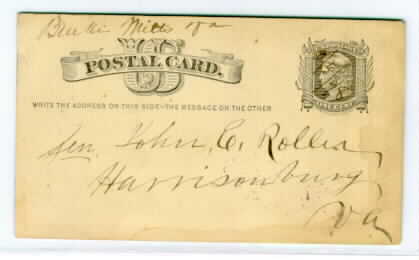 Mills Va
US
POSTAL CARD.
WRITE THE ADDRESS ON THIS SIDE-THE MESSAGE ON THE OTHER
Gen. John E. Roller
Harrisonburg
Va